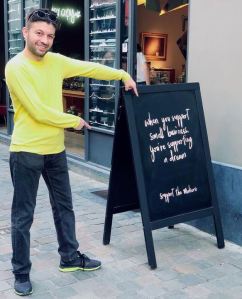 when you support
small business,
you're supporting
a dream
Support the Makers